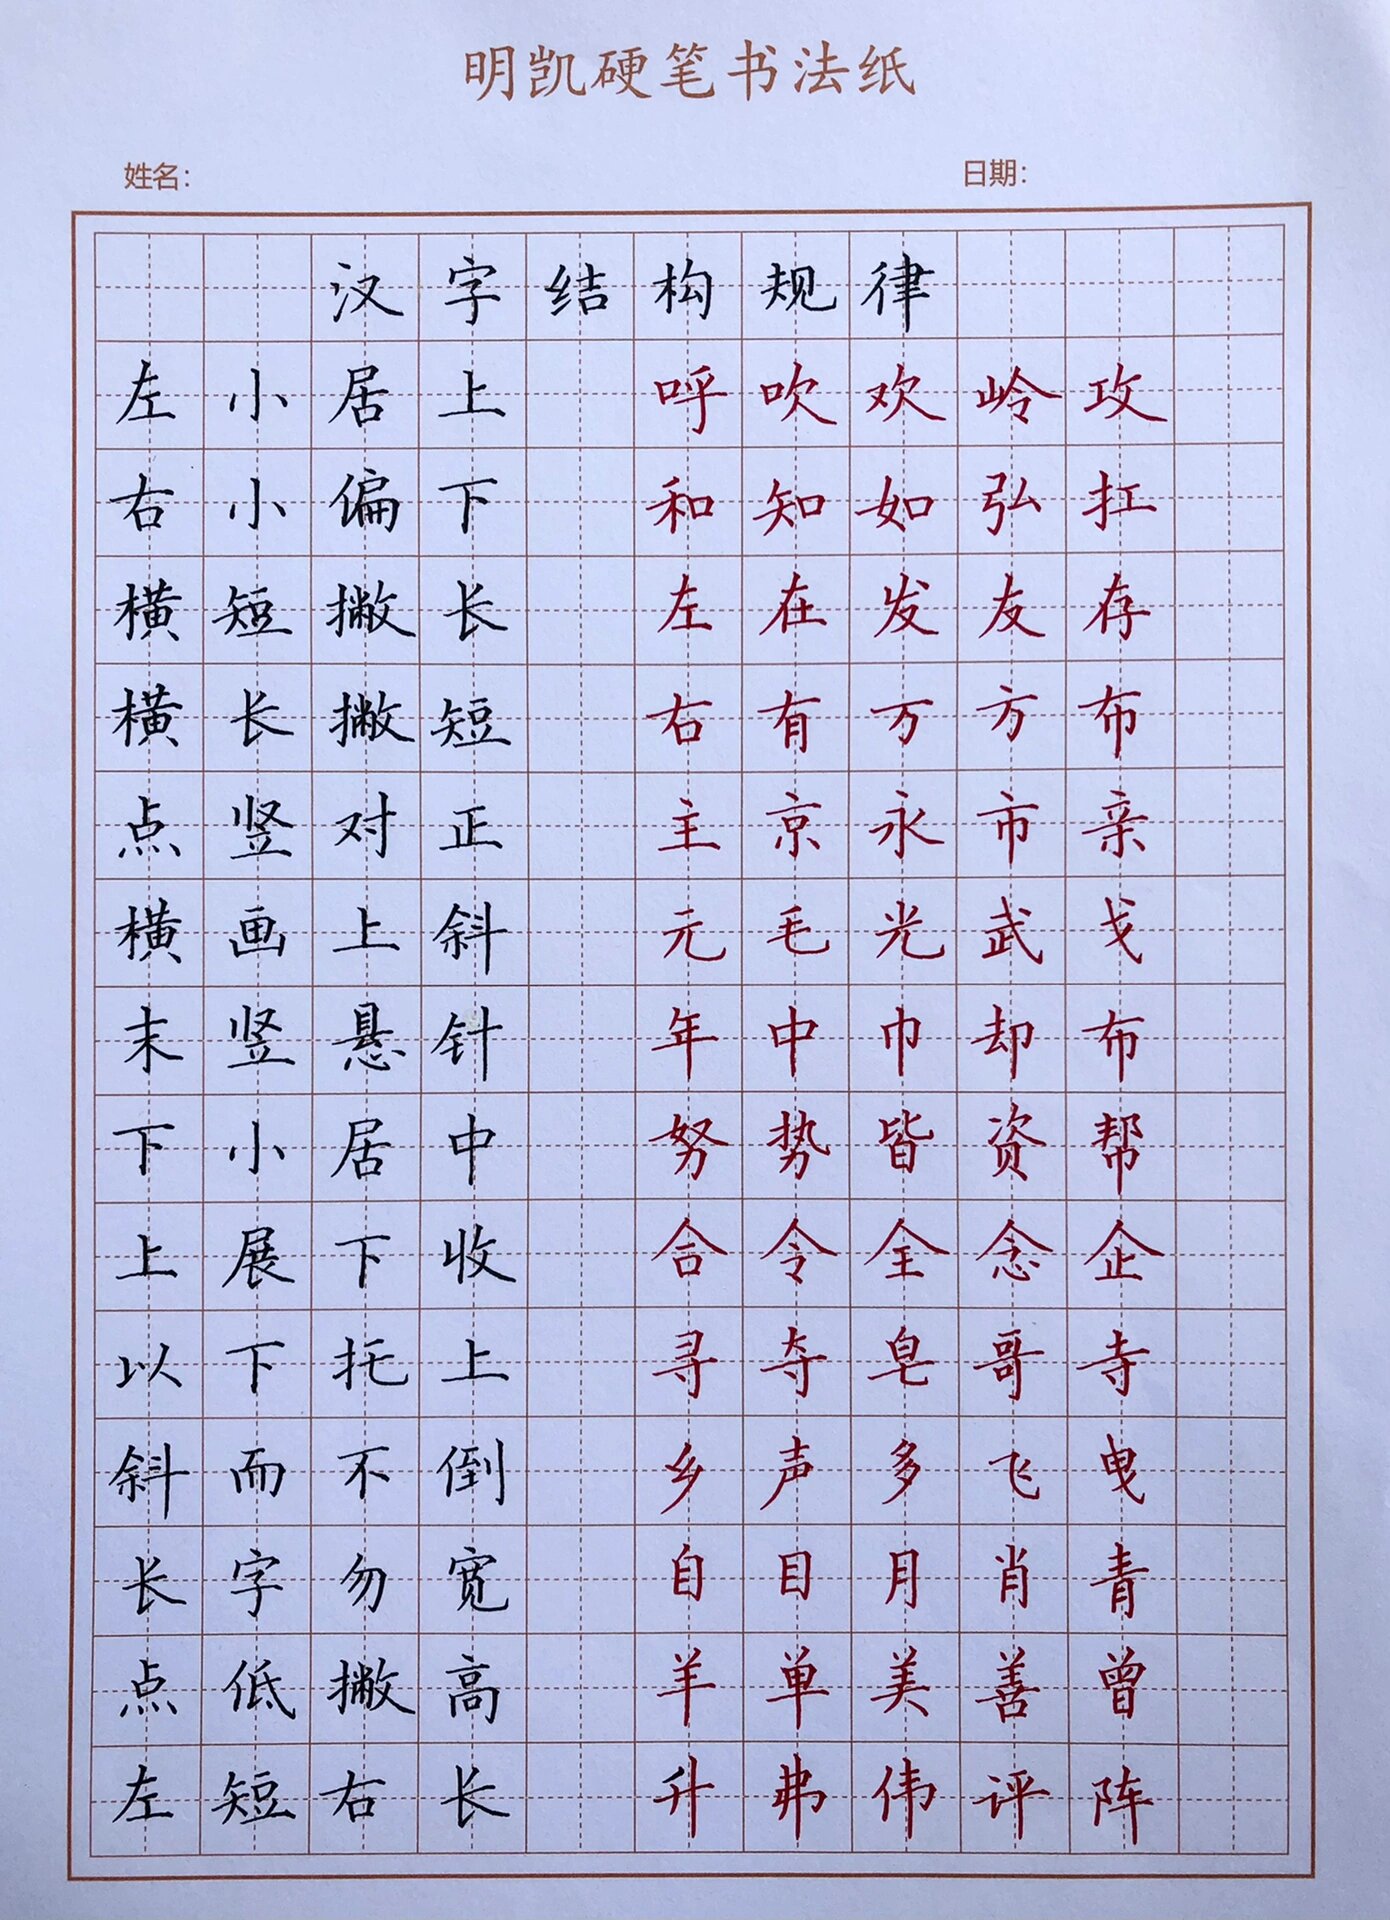 明凯硬笔书法纸
姓名: 日期:
汉字结构规律
左小居上 呼吹欢岭攻
右小偏下 和知如弘扛
横短撇长 左在发友存
横长撇短 右有万方布
点竖对正 主京永市亲
横画上斜 元毛光武戈
末竖悬针 年中巾却布
下小居中 努势皆资帮
上展下收 合令全念企
以下托上 寻夺皂哥寺
斜而不倒 乡声多飞曳
长字勿宽 自目月肖青
点低撇高 羊单美善曾
左短右长 升弗伟评阵